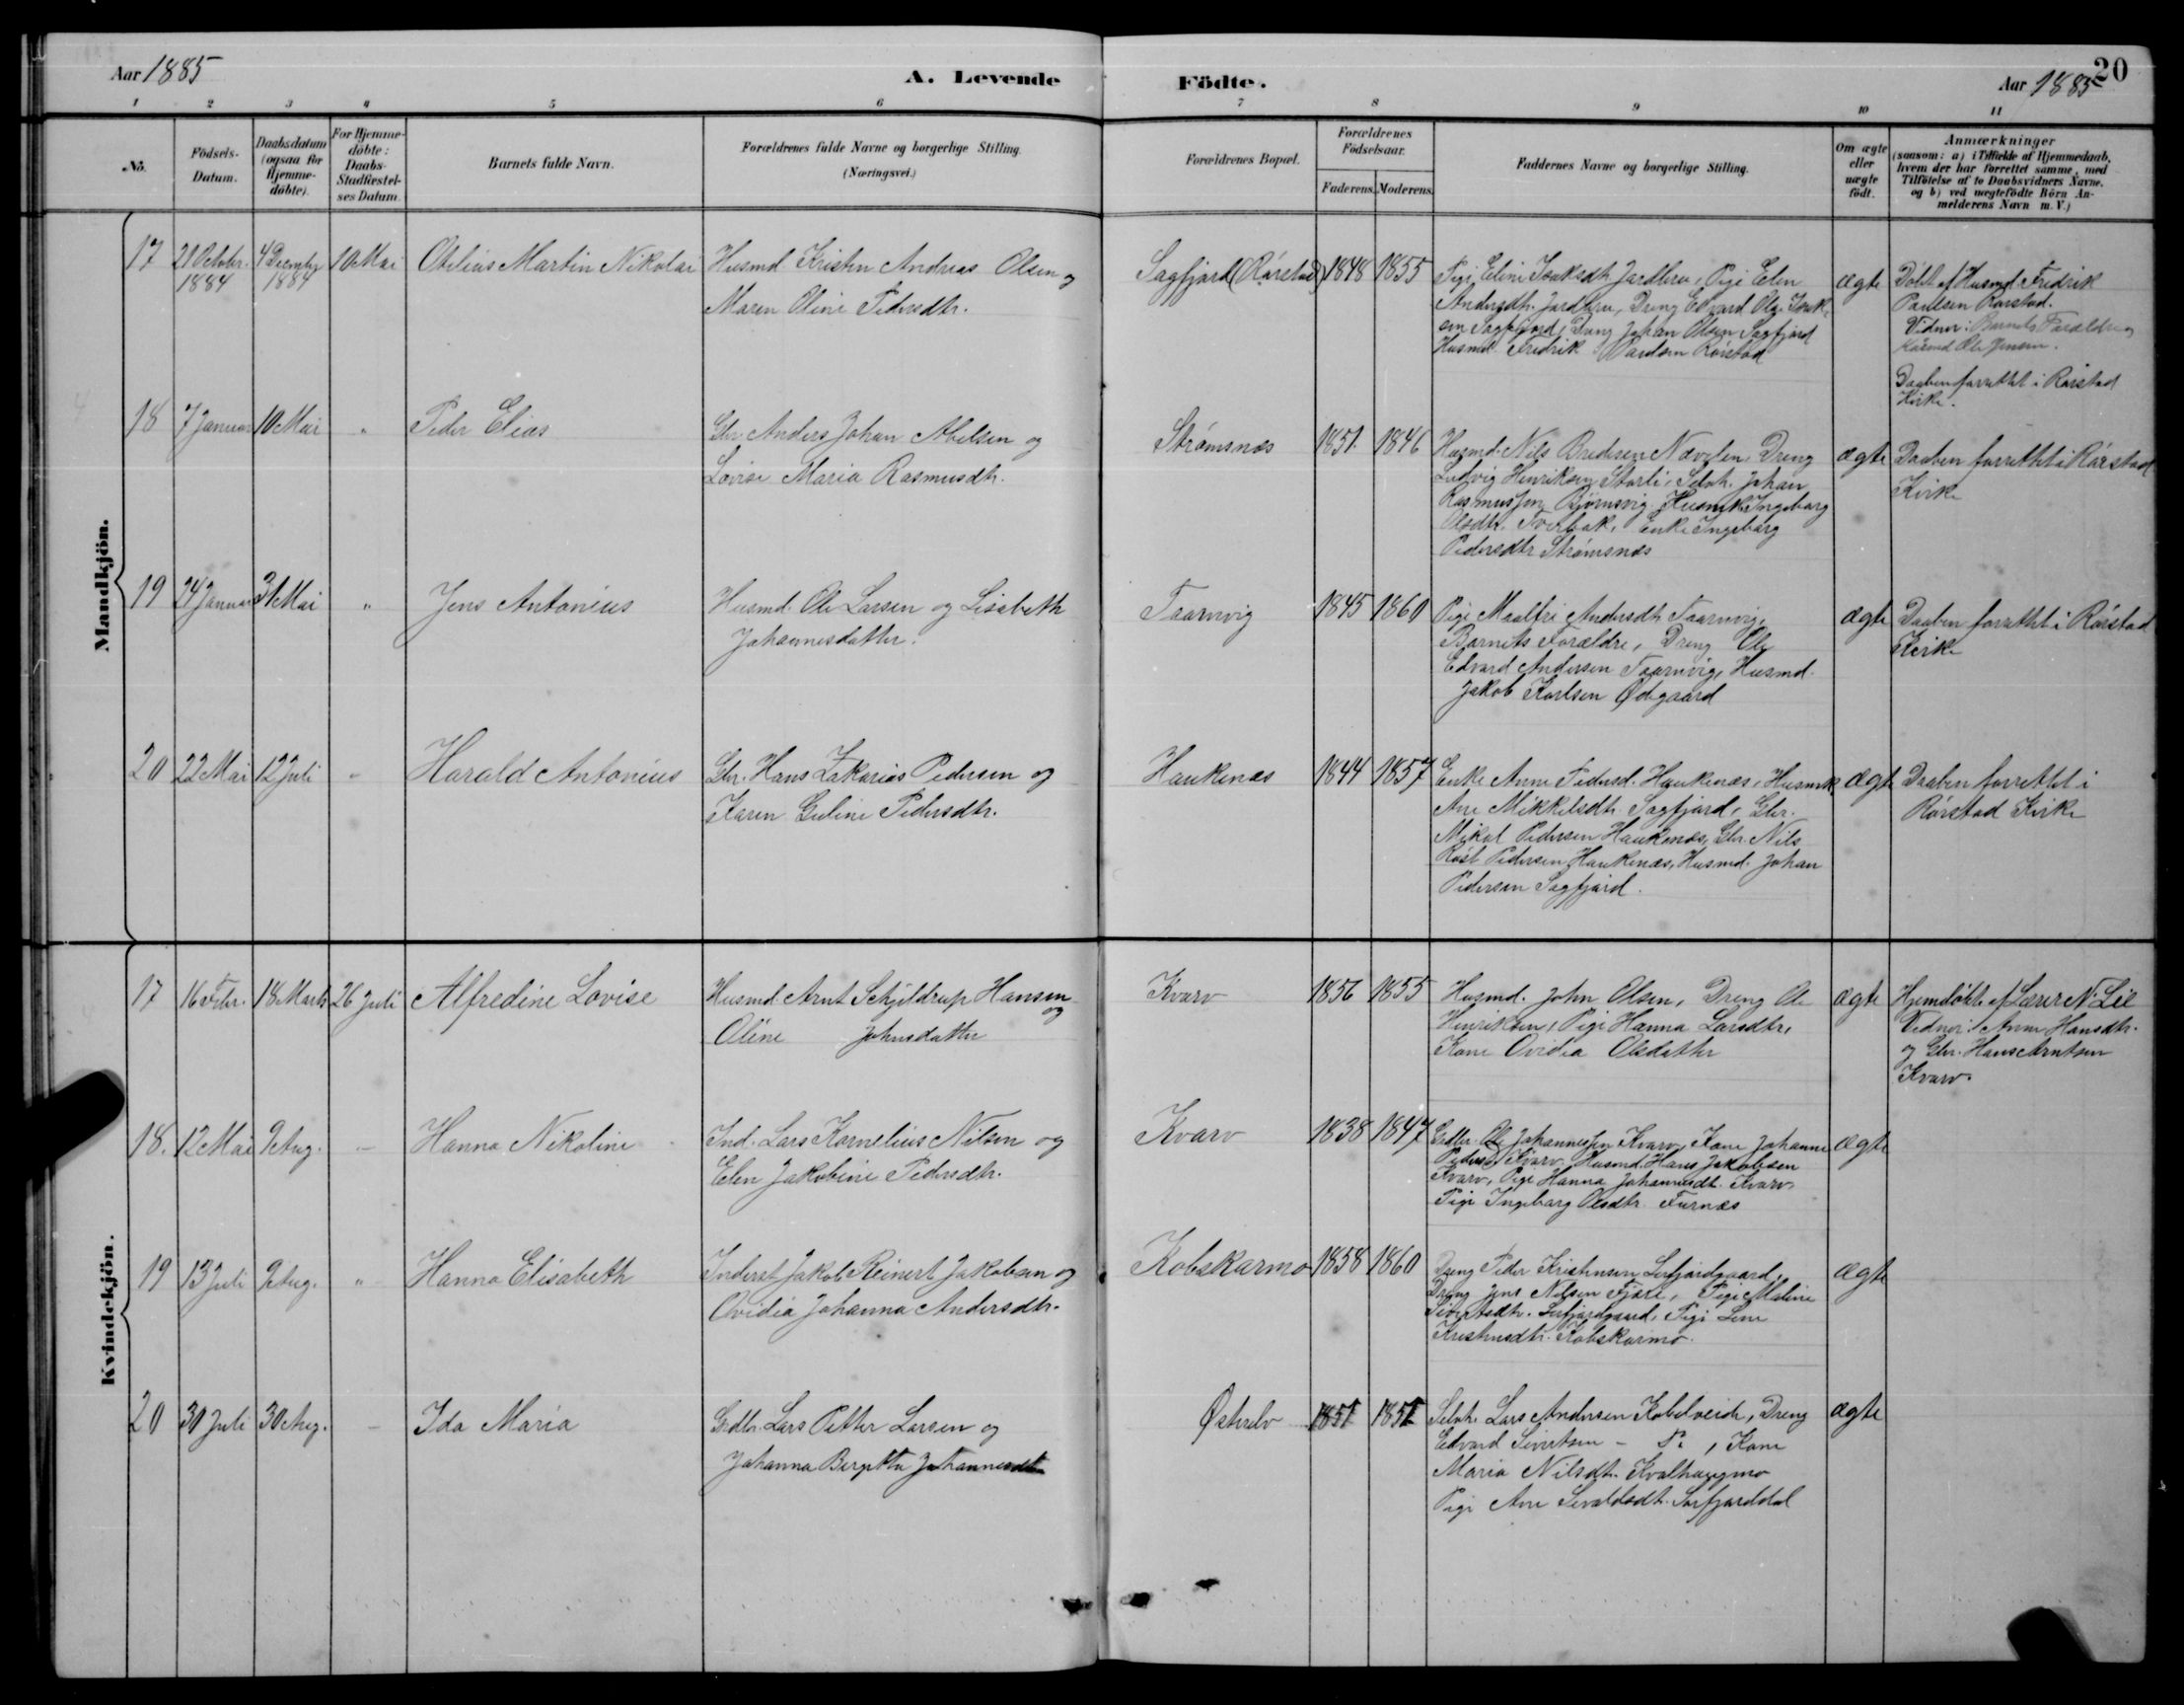 Aar 1885
A. Levende
Födte.
Aar 1885
20
1 2 3 4 5 6 7 8 9 10 11
No.
Födsels-
Datum.
Daabsdatum
(ogsaa for
Hjemme-
döbte).
For Hjemme-
döbte:
Daabs-
Stadfæstel-
ses Datum.
Barnets fulde Navn.
Forældrenes fulde Navne og borgerlige Stilling.
(Næringsvei.)
Forældrenes Bopæl.
Forældrenes
Födselsaar.
Faderens. Moderens.
Faddernes Navne og borgerlige Stilling.
Om ægte
eller
uægte
födt.
Anmærkninger
(saasom: a) i Tilfælde af Hjemmedaab,
hvem der har forrettet samme, med
Tilföielse af to Daabsvidners Navne,
og b) ved uægtefödte Börn An-
melderens Navn m. V.)
Mandkjön.
17
21 Octobr.
1884
4 Decembr
1884
10 Mai
Otelius Martin Nikolai
Husmd. Kristen Andreas Olsen og
Maren Oline Pedersdtr.
Sagfjord (Rørstad)
1848
1855
Pige Eline Isaksdtr. Jordbru, Pige Elen
Andersdtr. Jordbru, Dreng Edvard Olai Isak-
sen Sagfjord, Dreng Johan Olsen Sagfjord
Husmd. Fredrik Paulsen Rørstad
ægte
Döbt af Husmd. Fredrik
Paulsen Rørstad.
Vidner: Barnets Forældre og
Ole Jensen.
Daaben forrettet i Rørstad
Kirke.
18
7 Januar
10 Mai
"
Peder Elias
Gbr. Anders Johan Abelsen og
Lovise Maria Rasmusdtr.
Strømsnes
1851.
1846
Husmd. Nils Bredesen Nævelen, Dreng
Ludvig Henriksen Storli, Selvh. Johan
Rasmussen Bjørnsvig, Husmk. Ingeborg
Olsdtr. Tverbak, Enke Ingeborg
Pedersdtr Strømsnes
ægte
Daaben forrettet i Rørstad
Kirke
19
24 Januar
31 Mai
"
Jens Antonius
Husmd. Ole Larsen og Lisabeth
Johannesdatter.
Taarnvig
1845
1860
Pige Maalfri Andersdtr. Taarnvig,
Barnets Forældre, Dreng Ole
Edvard Andersen Taarnvig, Husmd.
Jakob Karlsen Ødegaard
ægte
Daaben forrettet i Rørstad
Kirke
20
22 Mai
12 Juli
"
Harald Antonius
Gbr. Hans Zakarias Pedersen og
Karen Guline Pedersdtr.
Haukenes
1844
1857
Enke Anne Pedersd. Haukenæs, Husmk.
Ane Mikkelsdtr. Sagfjord, Gbr.
Mikal Pedersen Haukenæs, Gbr. Nils
Røst Pedersen Haukenæs, Husmd. Johan
Pedersen Sagfjord.
ægte
Daaben forrettet i
Rørstad Kirke
Kvindekjön.
17
16 Febr.
18 Marts
26 Juli
Alfredine Lovise
Husmd. Arnt Schjeldrup Hansen
og
Oline Johnsdatter
Kvarv
1856
1855
Husmd. John Olsen, Dreng Ole
Henriksen, Pige Hanna Larsdtr,
Kone Ovidia Olsdatter
ægte
Hjemdöbt af Lærer N. Lie
Vidner: Anne Hansdtr.
og Gbr. Hans Arntsen
Kvarv.
18.
12 Mai
9 Aug.
-
Hanna Nikoline
Ind. Lars Kornelius Nilsen og
Elen Jakobine Pedersdtr.
Kvarv
1838
1847
Grdbr. Ole Johannessen Kvarv, Kone Johanne
Pedersd. Kvarv, Husmd. Hans Jakobsen
Kvarv, Pige Hanna Johannesdtr. Kvarv,
Pige Ingeborg Olsdtr. Furnæs
ægte
19
13 Juli
9 Aug.
"
Hanna Elisabeth
Inderst Jakob Reinert Jakobsen og
Ovidia Johanna Andersdtr.
Kobskarmo
1858
1860
Dreng Peder Kristensen Sørfjordgaard,
Dreng Jens Nilsen Fjære, Pige Maline
Sivertsdtr. Sørfjordgaard, Pige Lene
Kristensdtr. Kobskarmo.
ægte
20
30 Juli
30 Aug.
-
Ida Maria
Grdbr. Lars Petter Larsen og
Johanna Bergitta Johannesdtr
Østrelv
1851
1851
Selvh. Lars Andersen Kobelveide, Dreng
Edvard Sivertsen - , Kone
Maria Nilsdtr. Kvalhaugmo
Pige Ane Sivaldsdtr. Sørfjorddal
ægte